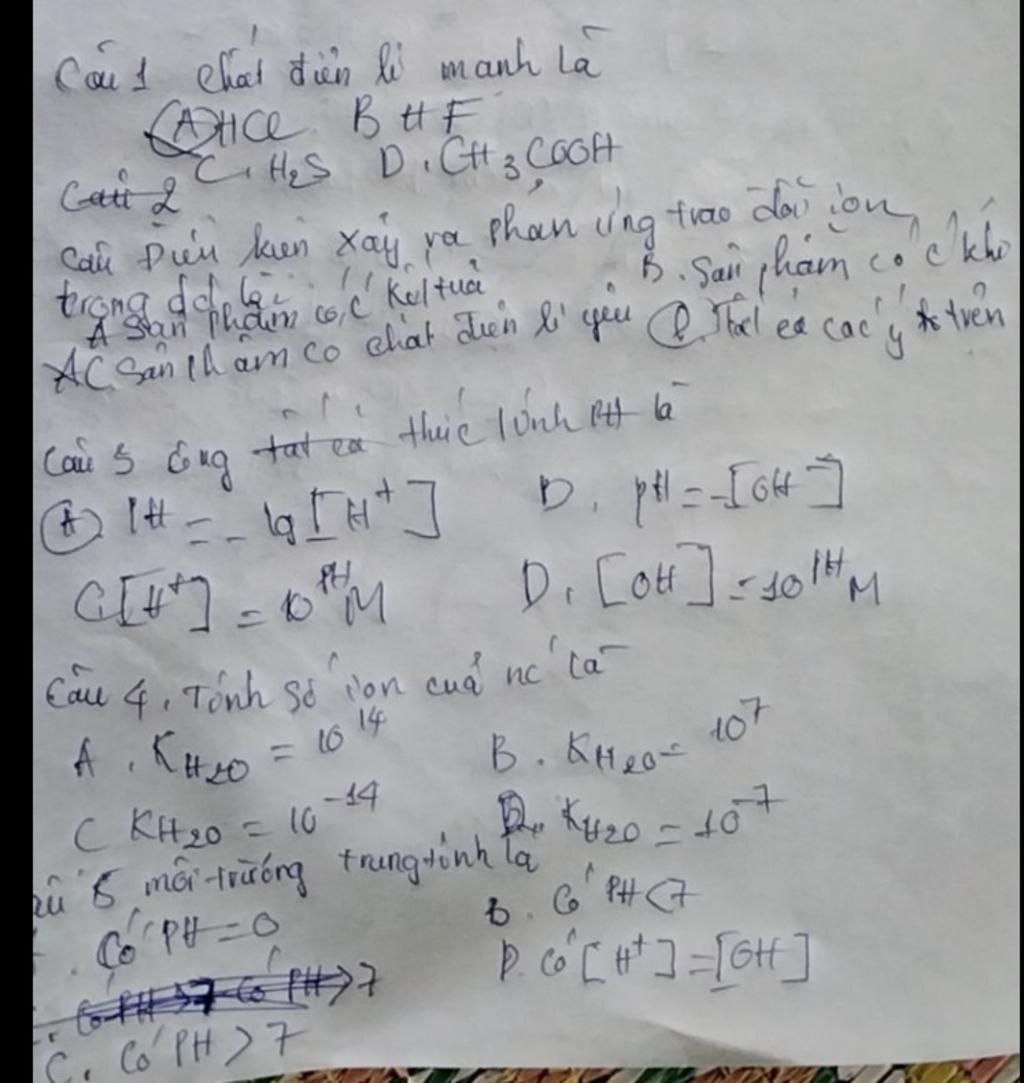 Câu 1 chất điện li manh là
(A) HCl B HF
C. H2S D. CH3COOH
Câu 2
Câu Điều kiện xảy ra phản ứng trao đổi ion
trong dd là
A sản phẩm có c' kết tủa B. Sản phẩm có c' khí
AC. Sản phẩm co chất điện li yếu D. Tất cả các ý trên
Câu 3 công tất cả thức tính PH là
(A) PH = - lg [H+] D. pH = -[OH-]
C [H+] = 10^PH M D. [OH-] = 10^PH M
Câu 4. Tính số ion của nc' là
A. KH2O = 10^14 B. KH2O = 10^7
C KH2O = 10^-14 D. KH2O = 10^-7
môi trường trung tính là
Có PH = 0 B. Có PH < 7
Có PH > 7 Có PH > 7 D. Có [H+] = [OH]
C. Có PH > 7